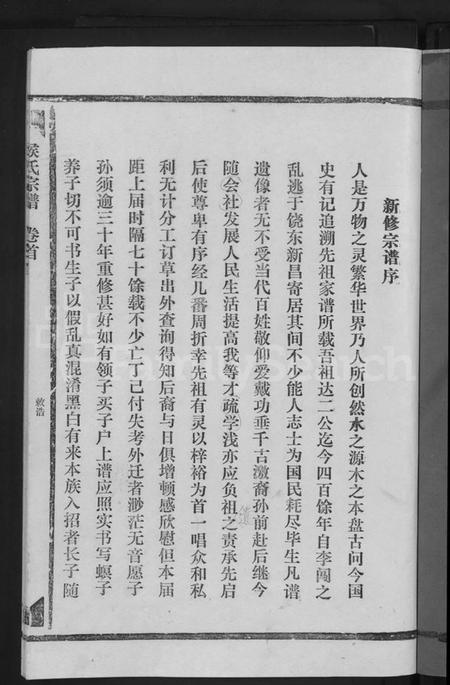 新修宗谱序
人是万物之灵繁华世界乃人所创然水之源木之本盘古问今国
史有记追溯先祖家谱所载吾祖达二公迄今四百馀年自李闯之
乱逃于饶东新昌寄居其间不少能人志士为国民耗尽毕生凡谱
遗像者无不受当代百姓敬仰爱戴功垂千古激裔孙前赴后继今
随会社发展人民生活提高我等才疏学浅亦应负祖之责承先启
后使尊卑有序经几番周折幸先祖有灵以梓裕为首一唱众和私
利无计分工订草出外查询得知后裔与日俱增顿感欣慰但本届
距上届时隔七十馀载不少亡丁己付失考外迁者渺茫无音愿子
孙须逾三十年重修甚好如有领子买子户上谱应照实书写螟子
养子切不可书生子以假乱真混淆黑白有来本族入招者长子随
侯氏宗谱 卷首
敦浩